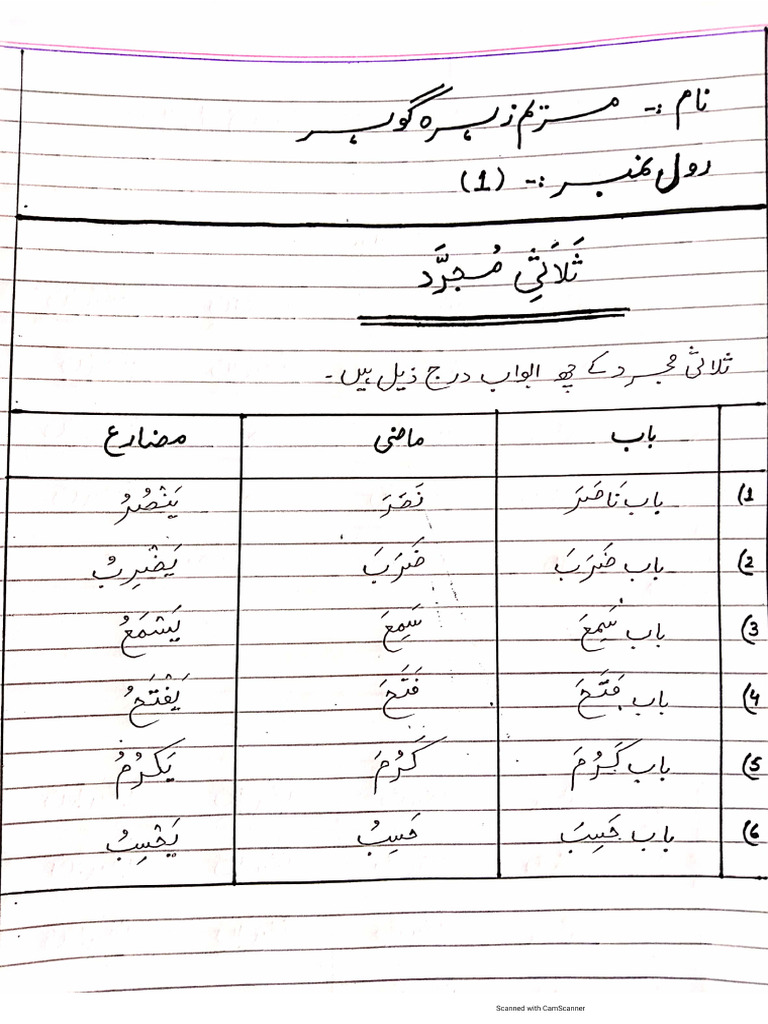 نام :- مریم زہرہ گوہر
رول نمبر :- (1)
ثَلَاثِي مُجرَّد
ثلاثی مجرد کے چھ ابواب درج ذیل ہیں۔
باب ماضی مضارع
(1 باب نَاصَرَ نَصَرَ يَنْصُرُ
(2 باب ضَرَبَ ضَرَبَ يَضْرِبُ
(3 باب سَمِعَ سَمِعَ يَسْمَعُ
(4 باب فَتَحَ فَتَحَ يَفْتَحُ
(5 باب كَرُمَ كَرُمَ يَكْرُمُ
(6 باب حَسِبَ حَسِبُ يَحْسِبُ
Scanned with CamScanner